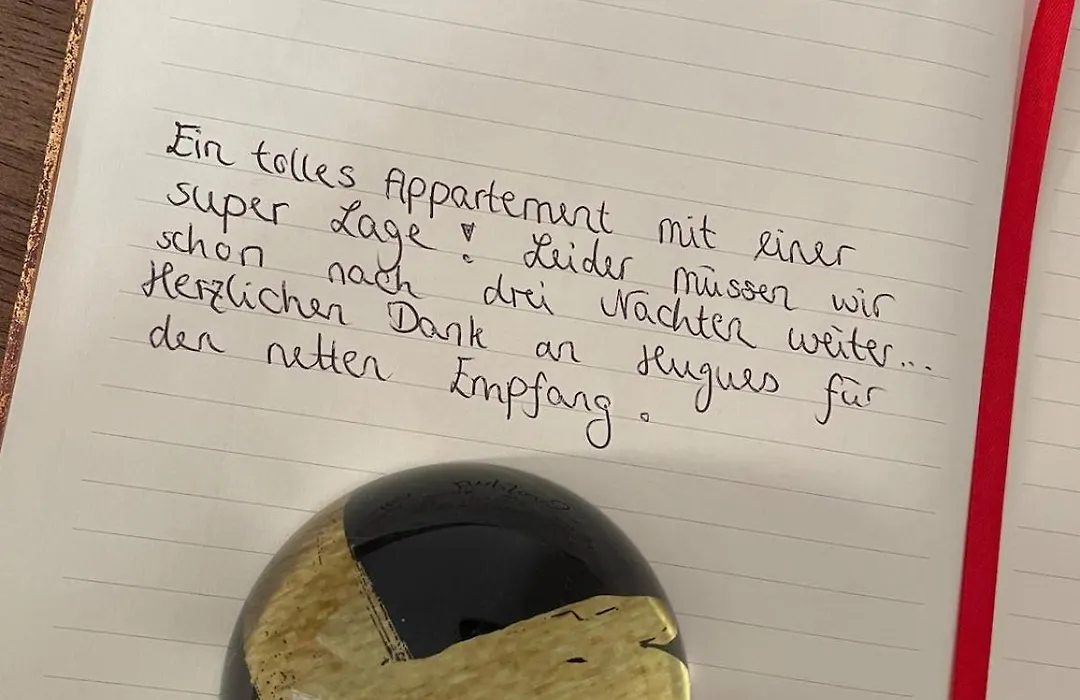 Ein tolles Appartement mit einer
super Lage! Leider müssen wir
schon nach drei Nächten weiter...
Herzlichen Dank an Hugues für
den netten Empfang.